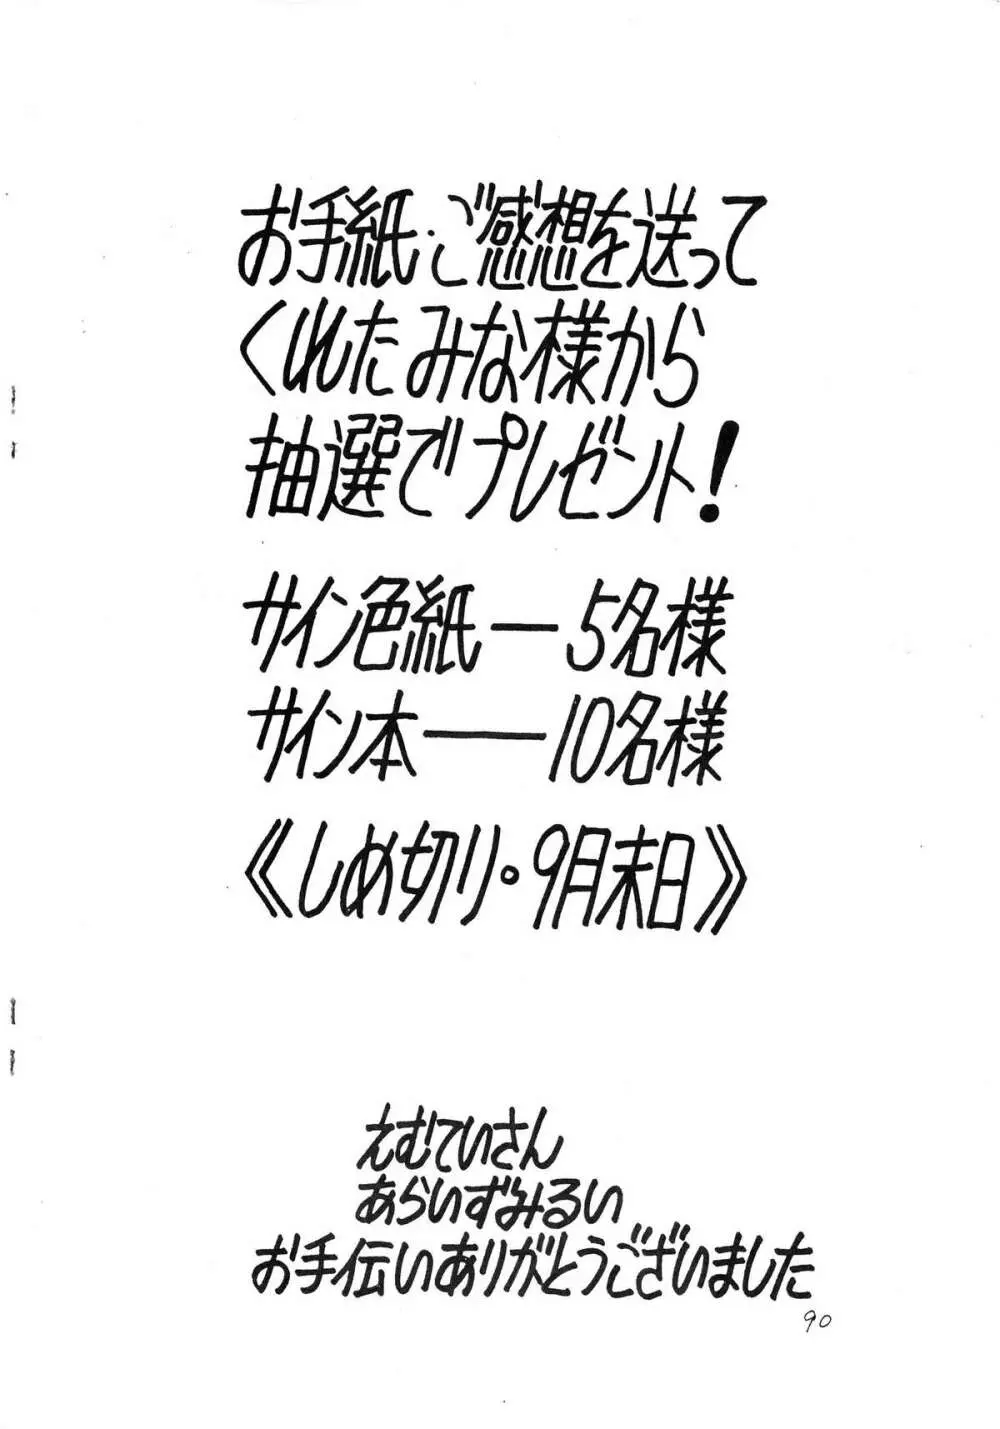 お手紙・ご感想を送って
くれたみな様から
抽選でプレゼント！
サイン色紙――5名様
サイン本――10名様
《しめ切り・9月末日》
えむていさん
あらいずみるい
お手伝いありがとうございました
90